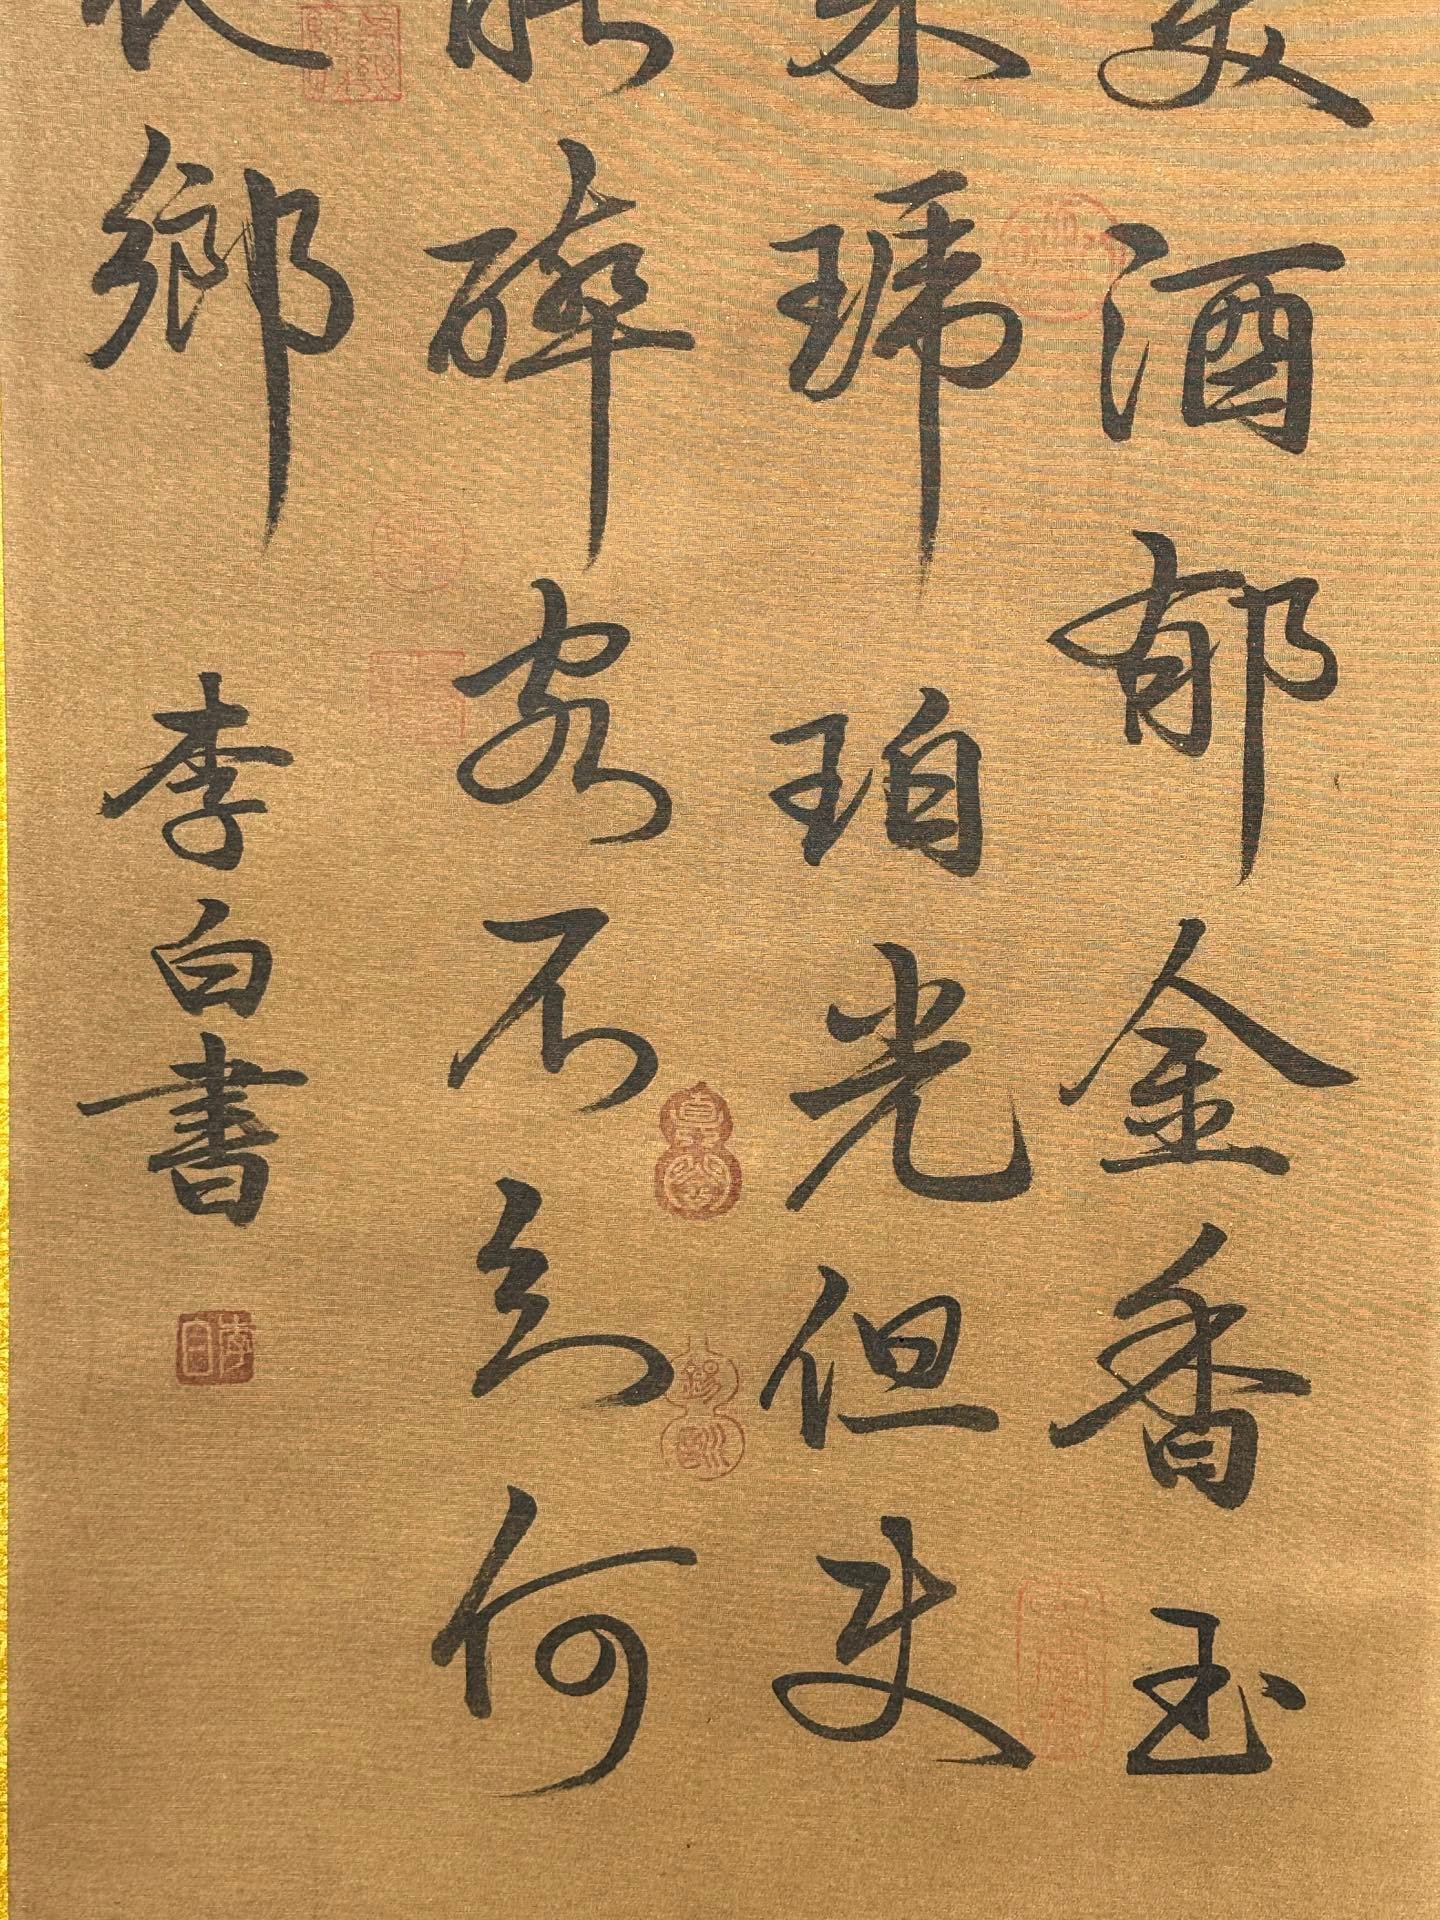 酒郁金香玉
琥珀光但使
醉客不知何
鄉
李白書
李白